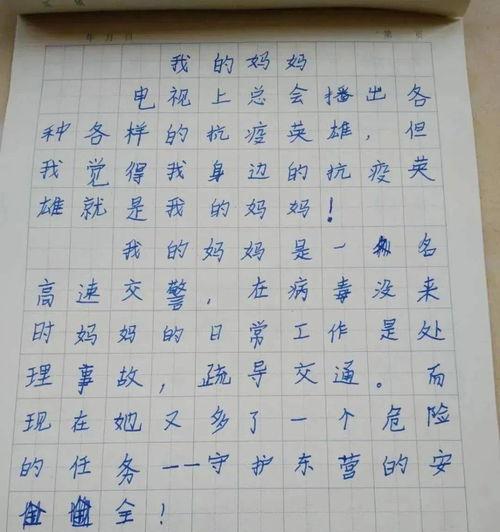 年 月 日 第 页
我的妈妈
电视上总会播出各
种各样的抗疫英雄，但
我觉得我身边的抗疫英
雄就是我的妈妈！
我的妈妈是一名
高速交警，在病毒没来
时妈妈的日常工作是处
理事故，疏导交通。而
现在她又多了一个危险
的任务——守护东营的安
全！